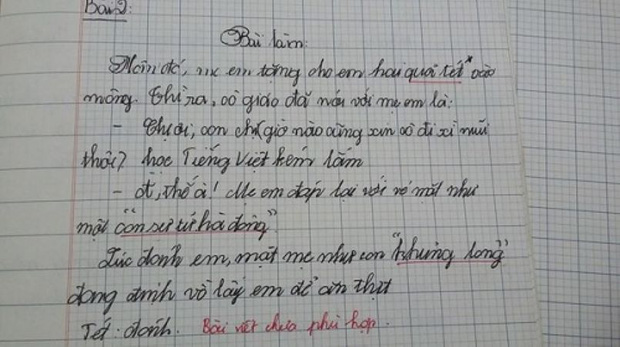 Bài 2:
Bài làm:
Hôm đó, mẹ em tặng cho em hai quai tét vào
mông. Thì ra, cô giáo đã nói với mẹ em là:
- Chị ơi, con chị giờ nào cũng xin cô đi xì mũi
thôi? học Tiếng Việt kém lắm
- Ồ, thế à! Mẹ em đáp lại với vẻ mặt như
một "con sư tử hà đông"
Lúc đánh em, mặt mẹ như con "khủng long"
đang định vồ lấy em để ăn thịt
Tét: đánh. Bài viết chưa phù hợp.